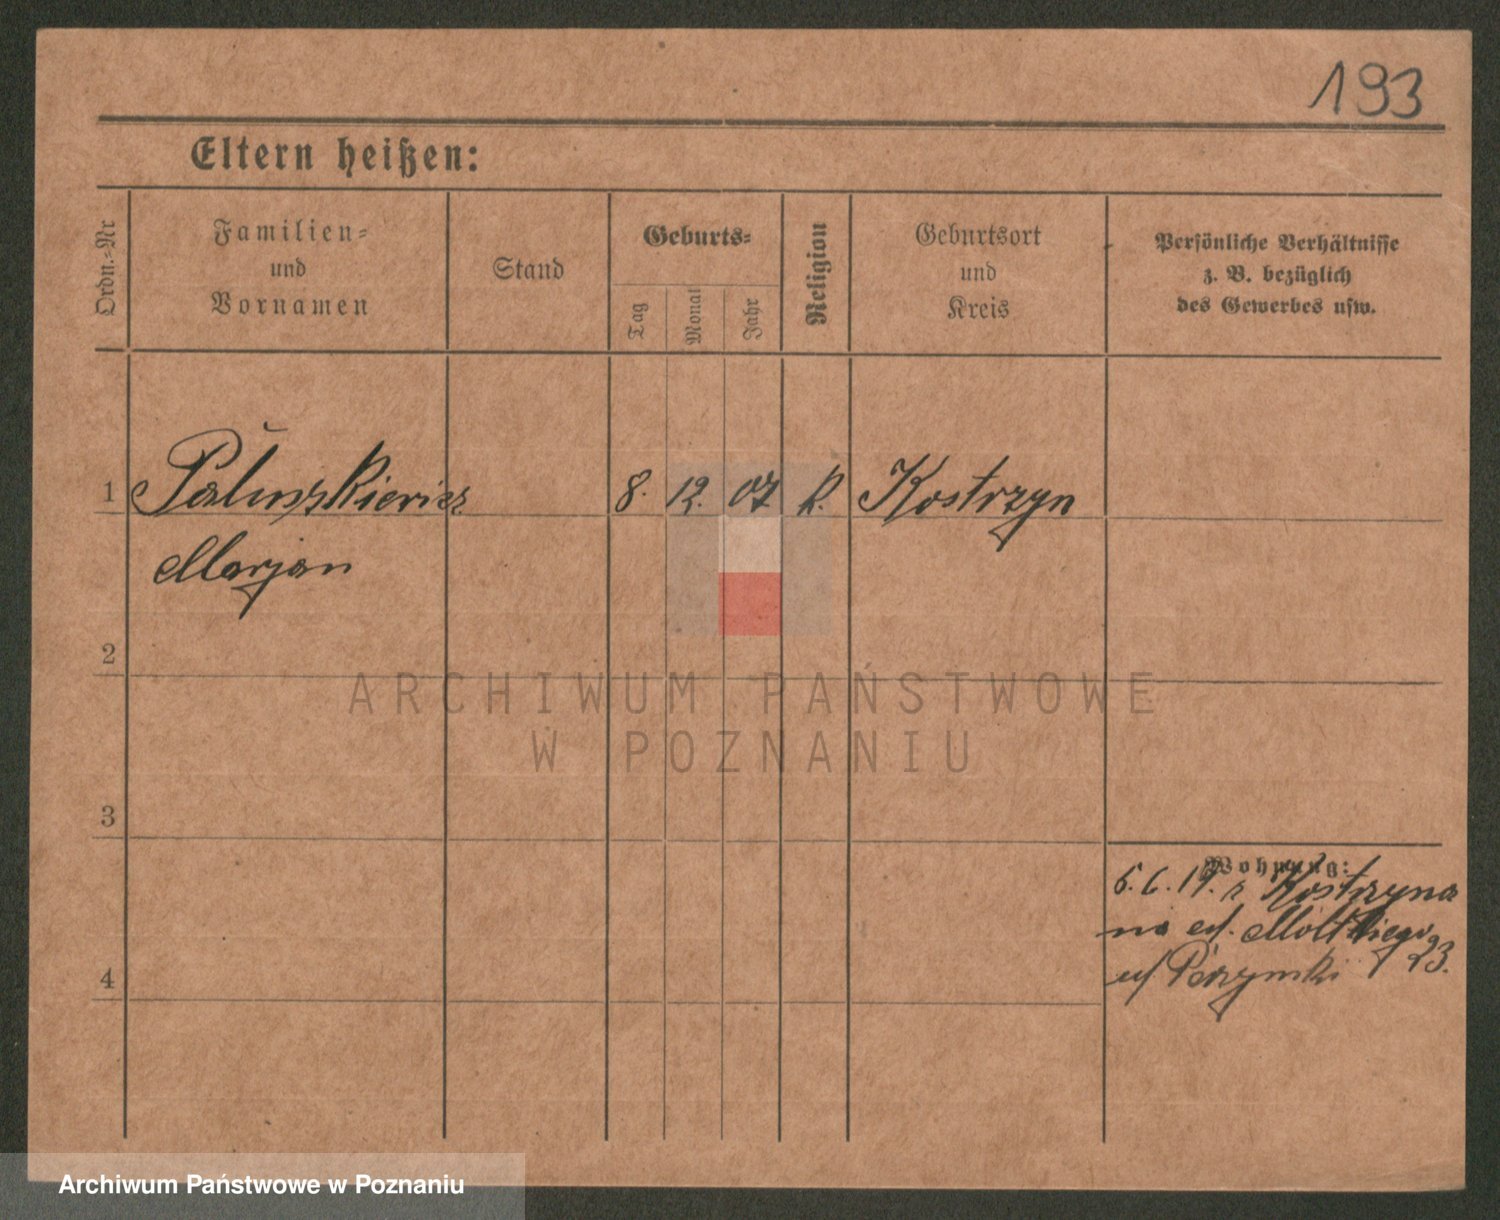 193
Eltern heißen:
Ordn.-Nr
Familien-
und
Vornamen
Stand
Geburts-
Tag
Monat
Jahr
Religion
Geburtsort
und
Kreis
Persönliche Verhältnisse
z. B. bezüglich
des Gewerbes usw.
1
8. 12. 07 K. Kostrzyn
Marjan
2
ARCHIWUM PAŃSTWOWE
W POZNANIU
3
Wohnung:
5.6.19. z Kostrzyna
na ul. Moltkiego
23.
4
Archiwum Państwowe w Poznaniu